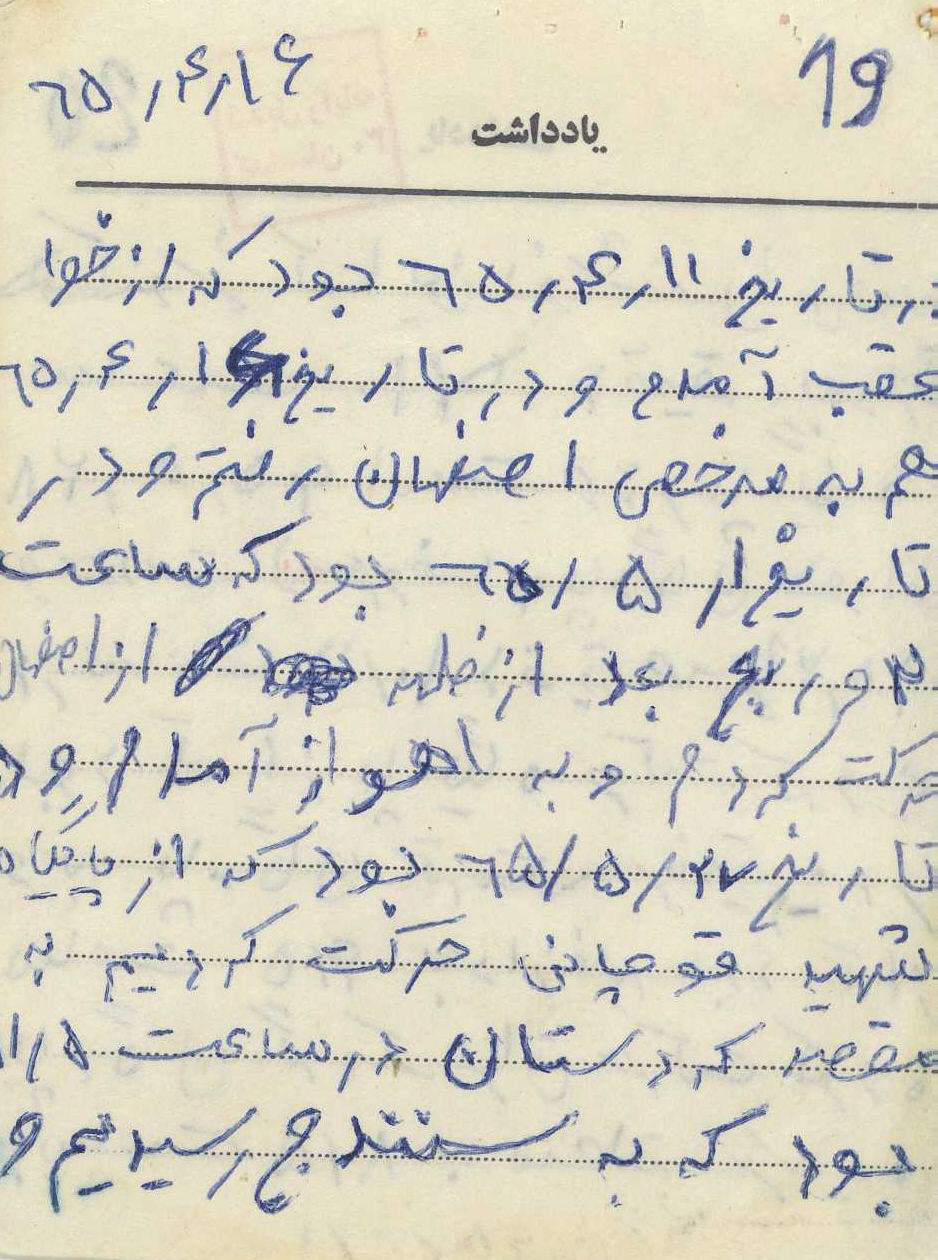 19
۶۵٫۴٫۱۶
یادداشت
در تاریخ ۶۵٫۴٫۱۱ بود که از خوا
عقب آمدم و در تاریخ ۶۵٫۴٫
هم به مرخصی اصفهان رفتم و در
تاریخ ۶۵٫۵٫۱ بود که ساعت
۳ و ربع بعد از ظهر از اصفهان
حرکت کردم و به اهواز آمدم و در
تاریخ ۶۵/۵/۲۷ بود که از پایگاه
شهید قوچانی حرکت کردیم به
مقصد کردستان در ساعت ۱۱٫۵
بود که به سنندج رسیدیم و